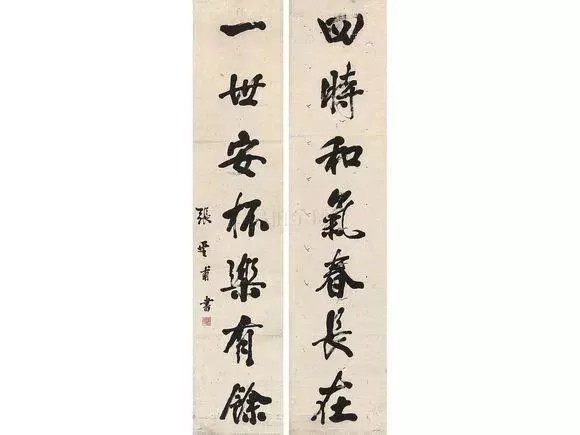 四時和氣春長在
一世安杯樂有餘
張靈甫書